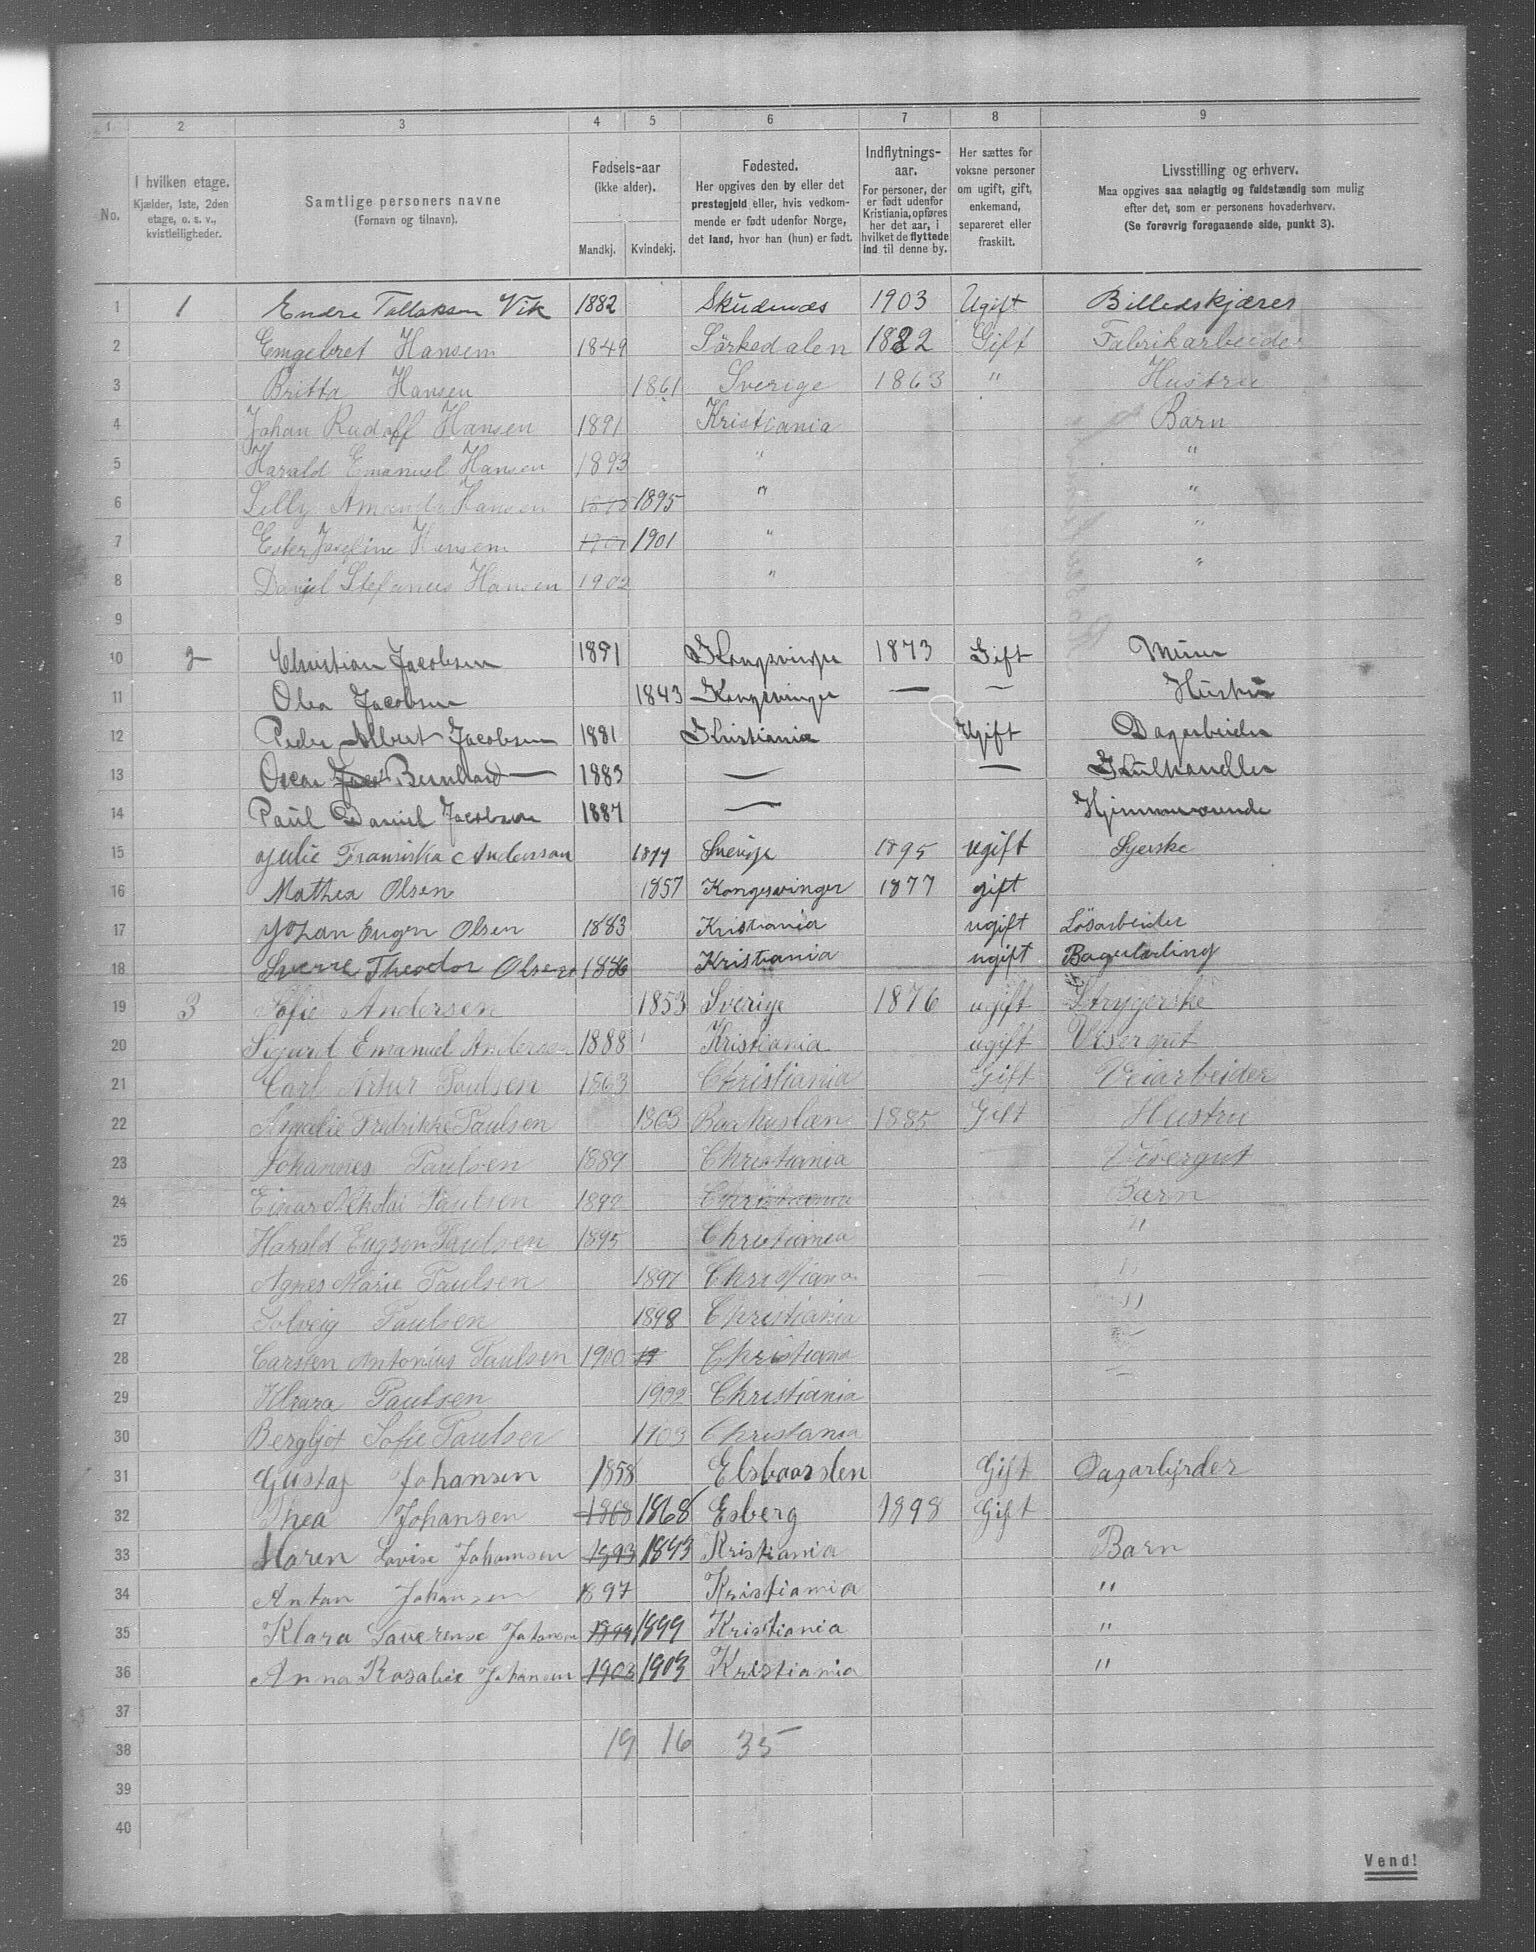 1 2 3 4 5 6 7 8 9
No.
I hvilken etage. Kjælder, 1ste, 2den etage, o. s. v., kvistleiligheder.
Samtlige personers navne (Fornavn og tilnavn).
Fødsels-aar (ikke alder). Mandkj. Kvindekj.
Fødested. Her opgives den by eller det prestegjeld eller, hvis vedkommende er født udenfor Norge, det land, hvor han (hun) er født.
Indflytnings-aar. For personer, der er født udenfor Kristiania, opføres her det aar, i hvilket de flyttede ind til denne by.
Her sættes for voksne personer om ugift, gift, enkemand, separeret eller fraskilt.
Livsstilling og erhverv. Maa opgives saa nøiagtig og fuldstændig som mulig efter det, som er personens hovederhverv. (Se forøvrig foregaaende side, punkt 3).
1 1 Endre Tollaksen Vik 1882 Skudenæs 1903 Ugift Billedskjærer
2 Engebret Hansen 1849 Sörkedalen 1882 Gift Fabrikarbeider
3 Britta Hansen 1861 Sverige 1863 " Hustru
4 Johan Rudolf Hansen 1891 Kristiania Barn
5 Harald Emanuel Hansen 1893 " "
6 Lilly Amanda Hansen 1895 1895 " "
7 Ester Josefine Hansen 1901 1901 " "
8 Daniel Stefanus Hansen 1902 " "
9
10 2 Christian Jacobsen Kongsvinger 1873 Gift Murer
11 Olea Jacobsen 1843 Kongsvinger — — Hustru
12 Peder Albert Jacobsen 1881 Kristiania Ugift Dagarbeider
13 Oscar Jaco Bernhard — 1883 — — Kulhandler
14 Paul Daniel Jacobsen 1887 — Hjemmeværende
15 Julie Fransiska Anderson 1877 Sverige 1895 ugift Syerske
16 Mathea Olsen 1857 Kongsvinger 1877 gift
17 Johan Eugen Olsen 1883 Kristiania ugift Løsarbeider
18 Sverre Theodor Olsen 1886 Kristiania ugift Bagerlærling
19 3 Sofie Andersen 1853 Sverige 1876 ugift Strygerske
20 Sigurd Emanuel Andersen 1888 Kristiania ugift Visergut
21 Carl Artur Paulsen 1863 Christiania Gift Veiarbeider
22 Amalie Fredrikke Paulsen 1863 1885 Gift Hustru
23 Johannes Paulsen 1889 Christiania Visergut
24 Einar Nikolai Paulsen Christiania Barn
25 Harald Eugen Paulsen 1895 Christiania "
26 Agnes Marie Paulsen 1897 Christiania "
27 Solveig Paulsen 1898 Christiania "
28 Carsten Antonius Paulsen 1900 19 Christiania
29 Klara Paulsen 1902 Christiania
30 Bergljot Sofie Paulsen 1903 Christania
31 Gustaf Johansen 1858 Gift Dagarbejder
32 Thea Johansen 1868 1868 Esberg 1898 Gift
33 Maren Lovise Johansen 1893 1893 Kristiania Barn
34 Anton Johansen 1897 Kristiania "
35 Klara Laverense Johansen 1899 1899 Kristiania "
36 Anna Rosalie Johansen 1903 1903 Kristiania "
37
38 19 16 35
39
40
Vend!